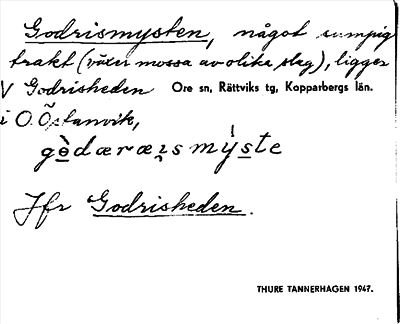 Godrismysten, något sumpig
trakt (växer mossa av olika slag), ligger
V Godrisheden Ore sn, Rättviks tg, Kopparbergs län.
i O. Östanvik,
Jfr Godrisheden.
THURE TANNERHAGEN 1947.